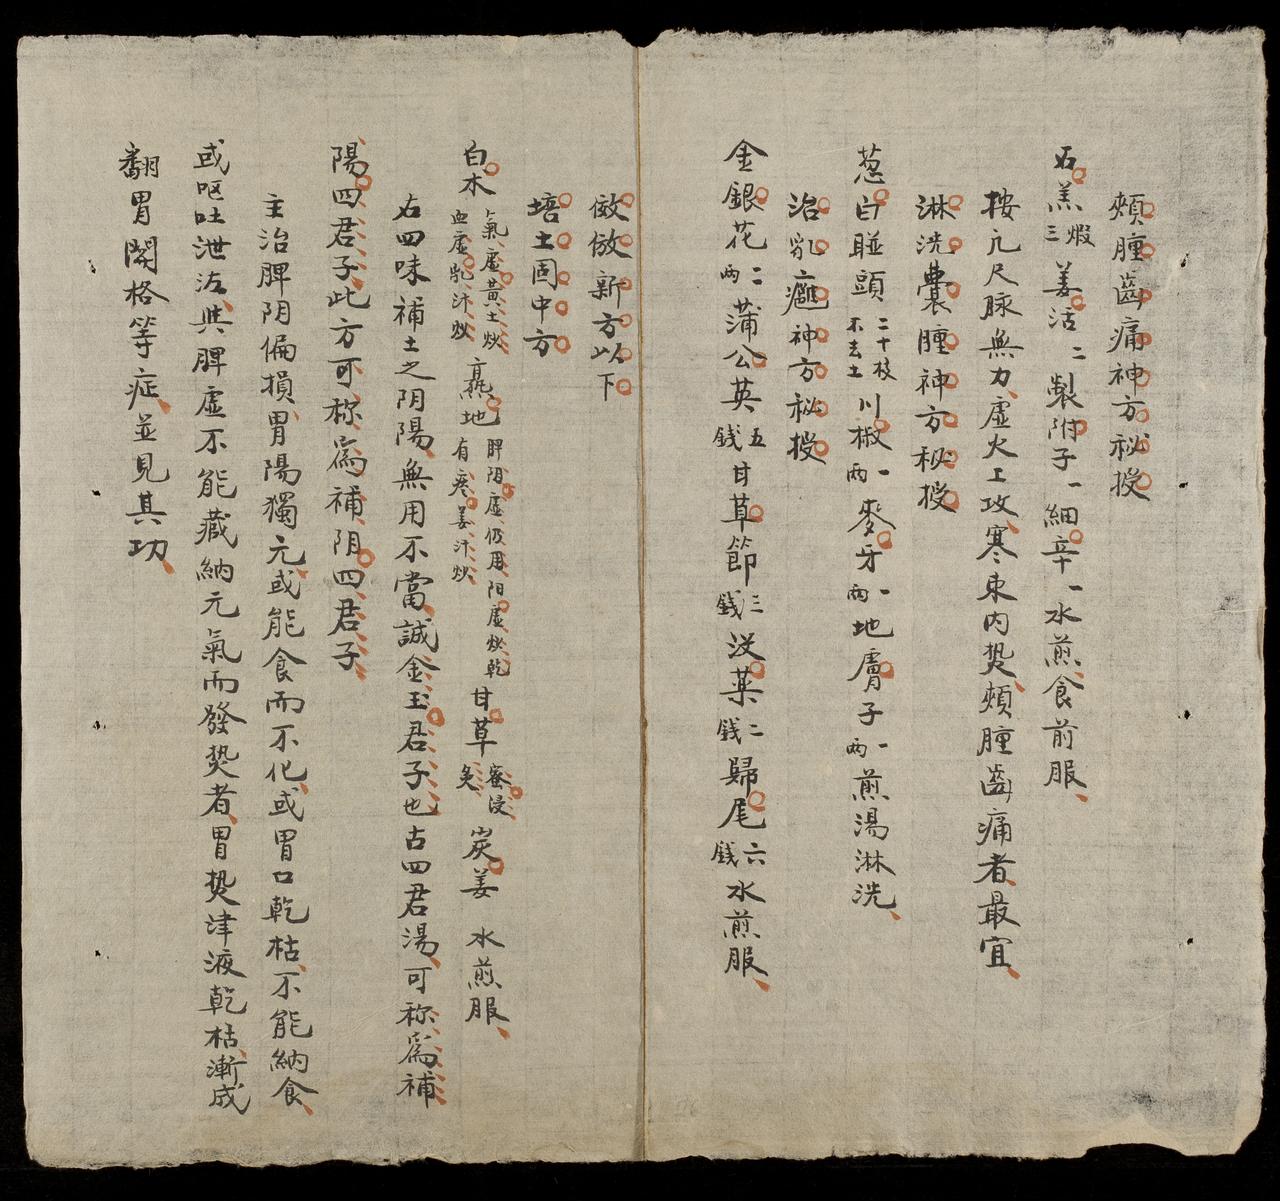 頰腫齒痛神方秘授
石羔煅三 羌活二 製附子一 細辛一 水煎食前服
按亢尺脉無力虛火上攻寒束内𤍠頰腫齒痛者最宜
淋洗囊腫神方秘授
葱白𨈭頭二十枝不去土 川椒一兩 麥牙一兩 地膚子一兩 煎湯淋洗
治乳癰神方秘授
金銀花二兩 蒲公英五錢 甘草節三錢 没药二錢 歸尾六錢 水煎服
倣倣新方以下
培土固中方
白术氣虛黃土炒血虛乳汁炒 熟地脾阴虛仍用阳虛炒乾有痰姜汁炒 甘草蜜浸炙 炭姜 水煎服
右四味補土之阴陽無用不當誠金玉君子也古四君湯可称為補
陽四君子此方可称為補阴四君子
主治脾阴偏損胃陽獨元或能食而不化或胃口乾枯不能納食
或呕吐泄泻與脾虛不能藏納元氣而發𤍠者胃𤍠津液乾枯漸成
翻胃関格等症並見其功